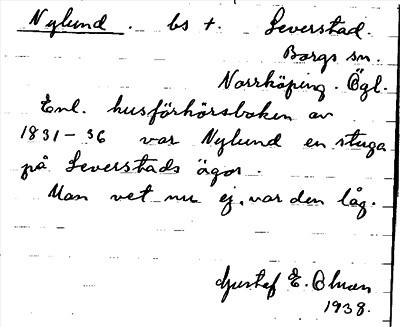 Nylund. bs t. Leverstad.
Borgs sn.
Norrköping. Ögl.
Enl. husförhörsboken av
1831-36 var Nylund en stuga
på Leverstads ägor.
Man vet nu ej, var den låg.
Gustef E. Ohman
1938.